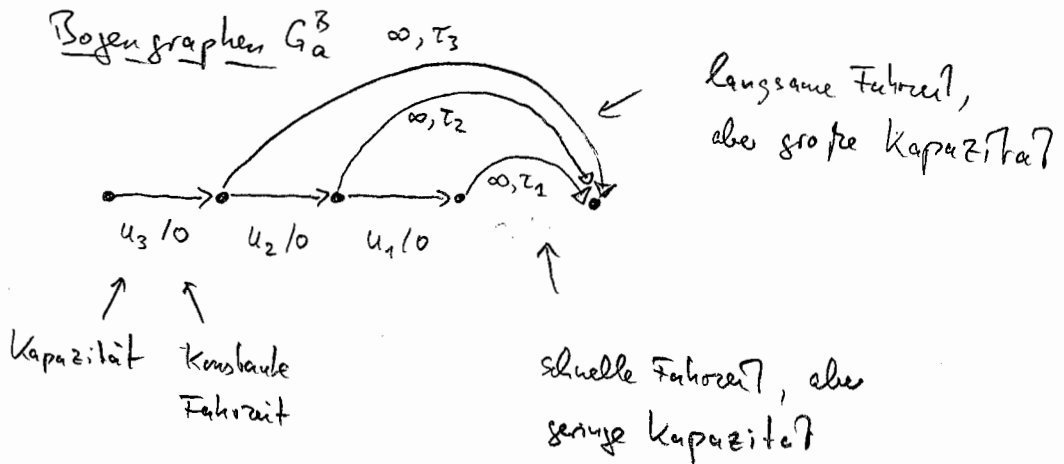 Bogengraphen G_a^B
∞, τ₃
langsame Fahrzeit,
aber große Kapazität
∞, τ₂
∞, τ₁
u₃/0 u₂/0 u₁/0
Kapazität Konstante
Fahrzeit
schnelle Fahrzeit, aber
geringe Kapazität